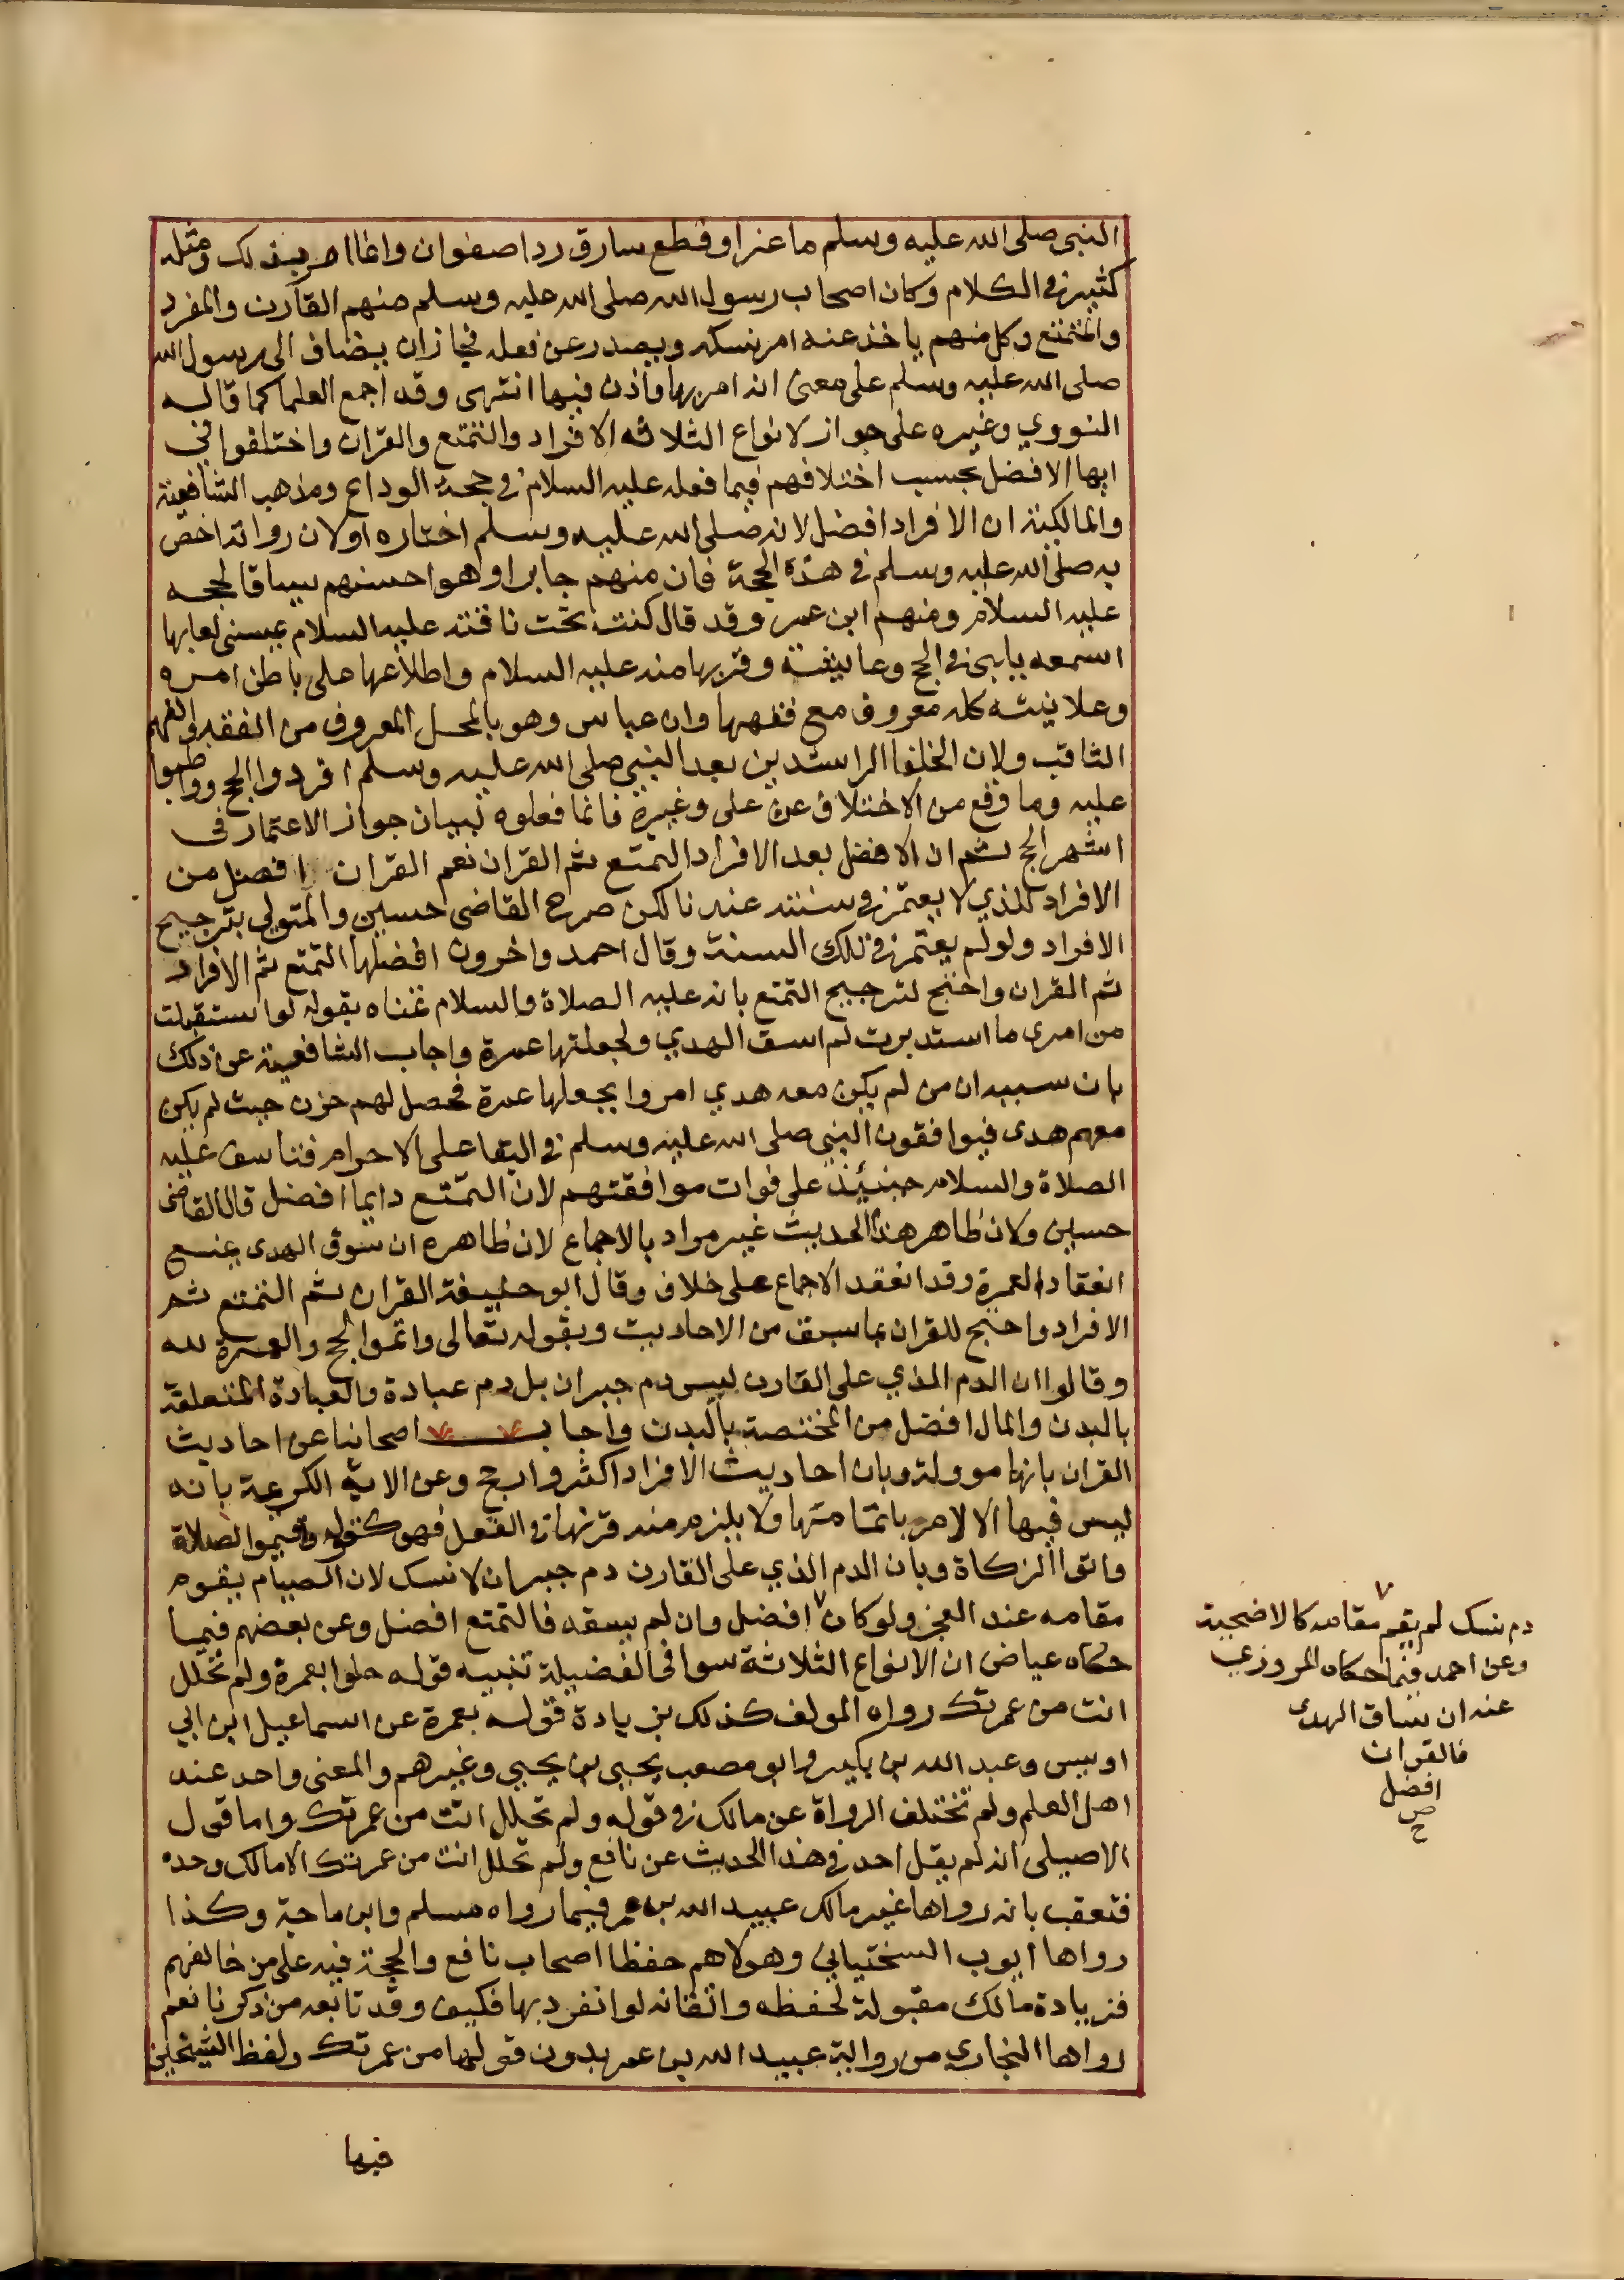 النبي صلى الله عليه وسلم ماعزا وقطع سارق ردا صفوان وانما امر بذلك ومثله
كثير في الكلام وكان اصحاب رسول الله صلى الله عليه وسلم منهم القارن والمفرد
والمتمتع وكل منهم ياخذ عنه امر نسكه ويصدر عن فعله فجاز ان يضاف الى رسول الله
صلى الله عليه وسلم على معنى انه امر بها واذن فيها انتهى وقد اجمع العلما كما قاله
النووي وغيره على جواز لانواع الثلاثه الافراد والتمتع والقران واختلفوا في
ايها الافضل بحسب اختلافهم فيما فعله عليه السلام في حجة الوداع ومذهب الشافعية
والمالكية ان الافراد افضل لانه صلى الله عليه وسلم اختاره اولان رواته اخص
به صلى الله عليه وسلم في هذه الحجة فان منهم جابرا وهو احسنهم سياقا لحجه
عليه السلام ومنهم ابن عمر وقد قال كنت تحت ناقته عليه السلام يمسني لعابها
اسمعه يلبي في الحج وعايشة وقربها منه عليه السلام واطلاعها على باطن امره
وعلانيته كله معروف مع فقهها وابن عباس وهو بالمحل المعروف من الفقه والفهم
الثاقب ولان الخلفا الراشدين بعد النبي صلى الله عليه وسلم افردوا الحج وواظبوا
عليه وما وقع من الاختلاف عن على وغيره فانما فعلوه لبيان جواز الاعتمار في
اشهر الحج ثم ان الافضل بعد الافراد التمتع ثم القران نعم القران افضل من
الافراد للذي لا يعتمر في سنته عندنا لكن صرح القاضي حسين والمتولي بترجيح
الافراد ولو لم يعتمر في تلك السنة وقال احمد واخرون افضلها التمتع ثم الافراد
ثم القران واحتج لترجيح التمتع بانه عليه الصلاة والسلام تمناه بقوله لو استقبلت
من امرى ما استدبرت لم اسق الهدي ولجعلتها عمرة واجاب الشافعية عن ذلك
بان سببه ان من لم يكن معه هدي امروا بجعلها عمرة فحصل لهم حزن حيث لم يكن
معهم هدى فيوافقون النبي صلى الله عليه وسلم في البقا على الاحرام فتاسف عليه
الصلاة والسلام حينئذ على فوات موافقتهم لان التمتع دايما افضل قال القاضي
حسين ولان ظاهر هذا الحديث غير مراد بالاجماع لان ظاهره ان سوق الهدى يمنع
انعقاد العمرة وقد انعقد الاجماع على خلاف وقال ابو حنيفة القران ثم التمتع ثم
الافراد واحتج للقران بما سبق من الاحاديث وبقوله تعالى واتموا الحج والعمرة لله
وقالوا ان الدم الذي على القارن ليس دم جبران بل دم عبادة والعبادة المتعلقة
بالبدن والمال افضل من المختصة بالبدن واجاب اصحابنا عن احاديث
القران بانها موولة وبان احاديث الافراد اكثر وارجح وعن الاية الكريمة بانه
ليس فيها الا الامر باتمامها ولا يلزم منه قرنها في الفعل فهو كقوله واقيموا الصلاة
واتوا الزكاة وبان الدم الذي على القارن دم جبران لا نسك لان الصيام يقوم
مقامه عند العجز ولو كان افضل وان لم يسقه فالتمتع افضل وعن بعضهم فيما
حكاه عياض ان الانواع الثلاثة سوا في الفضيلة تنبيه قوله حلوا بعمرة ولم تحلل
انت من عمرتك رواه المولف كذلك بزيادة قوله بعمرة عن اسماعيل ابن ابي
اويس وعبد الله بن بكير وابو مصعب يحيى بن يحيى وغيرهم والمعنى واحد عند
اهل العلم ولم تختلف الرواة عن مالك في قوله ولم تحلل انت من عمرتك واما قول
الاصيلي انه لم يقل احد في هذا الحديث عن نافع ولم تحلل انت من عمرتك الا مالك وحده
فتعقب بانه رواها غير مالك عبيد الله بن عمر فيما رواه مسلم وابن ماجة وكذا
رواها ايوب السختياني وهولا هم حفظا اصحاب نافع والحجة فيه على من خالفهم
فزيادة مالك مقبولة لحفظه واتقانه لو انفرد بها فكيف وقد تابعه من ذكرنا نعم
رواها البخاري من رواية عبيد الله بن عمر بدون قولها من عمرتك ولفظ الشيخين
فيها
دم نسك لم يقم مقامه كالاضحية
وعن احمد فيما حكاه المروزي
عنه ان ساق الهدى
فالقران
افضل
صح